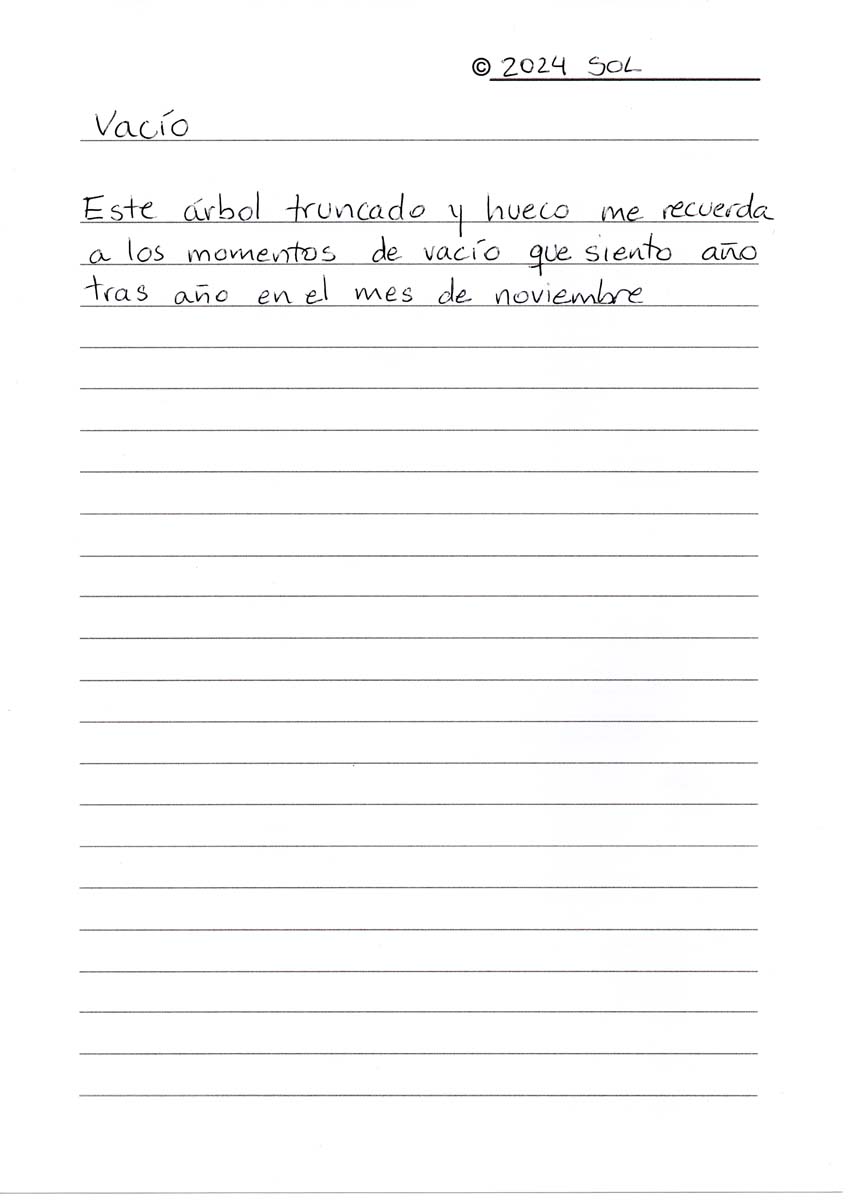 © 2024 SOL
Vacío
Este árbol truncado y hueco me recuerda
a los momentos de vacío que siento año
tras año en el mes de noviembre